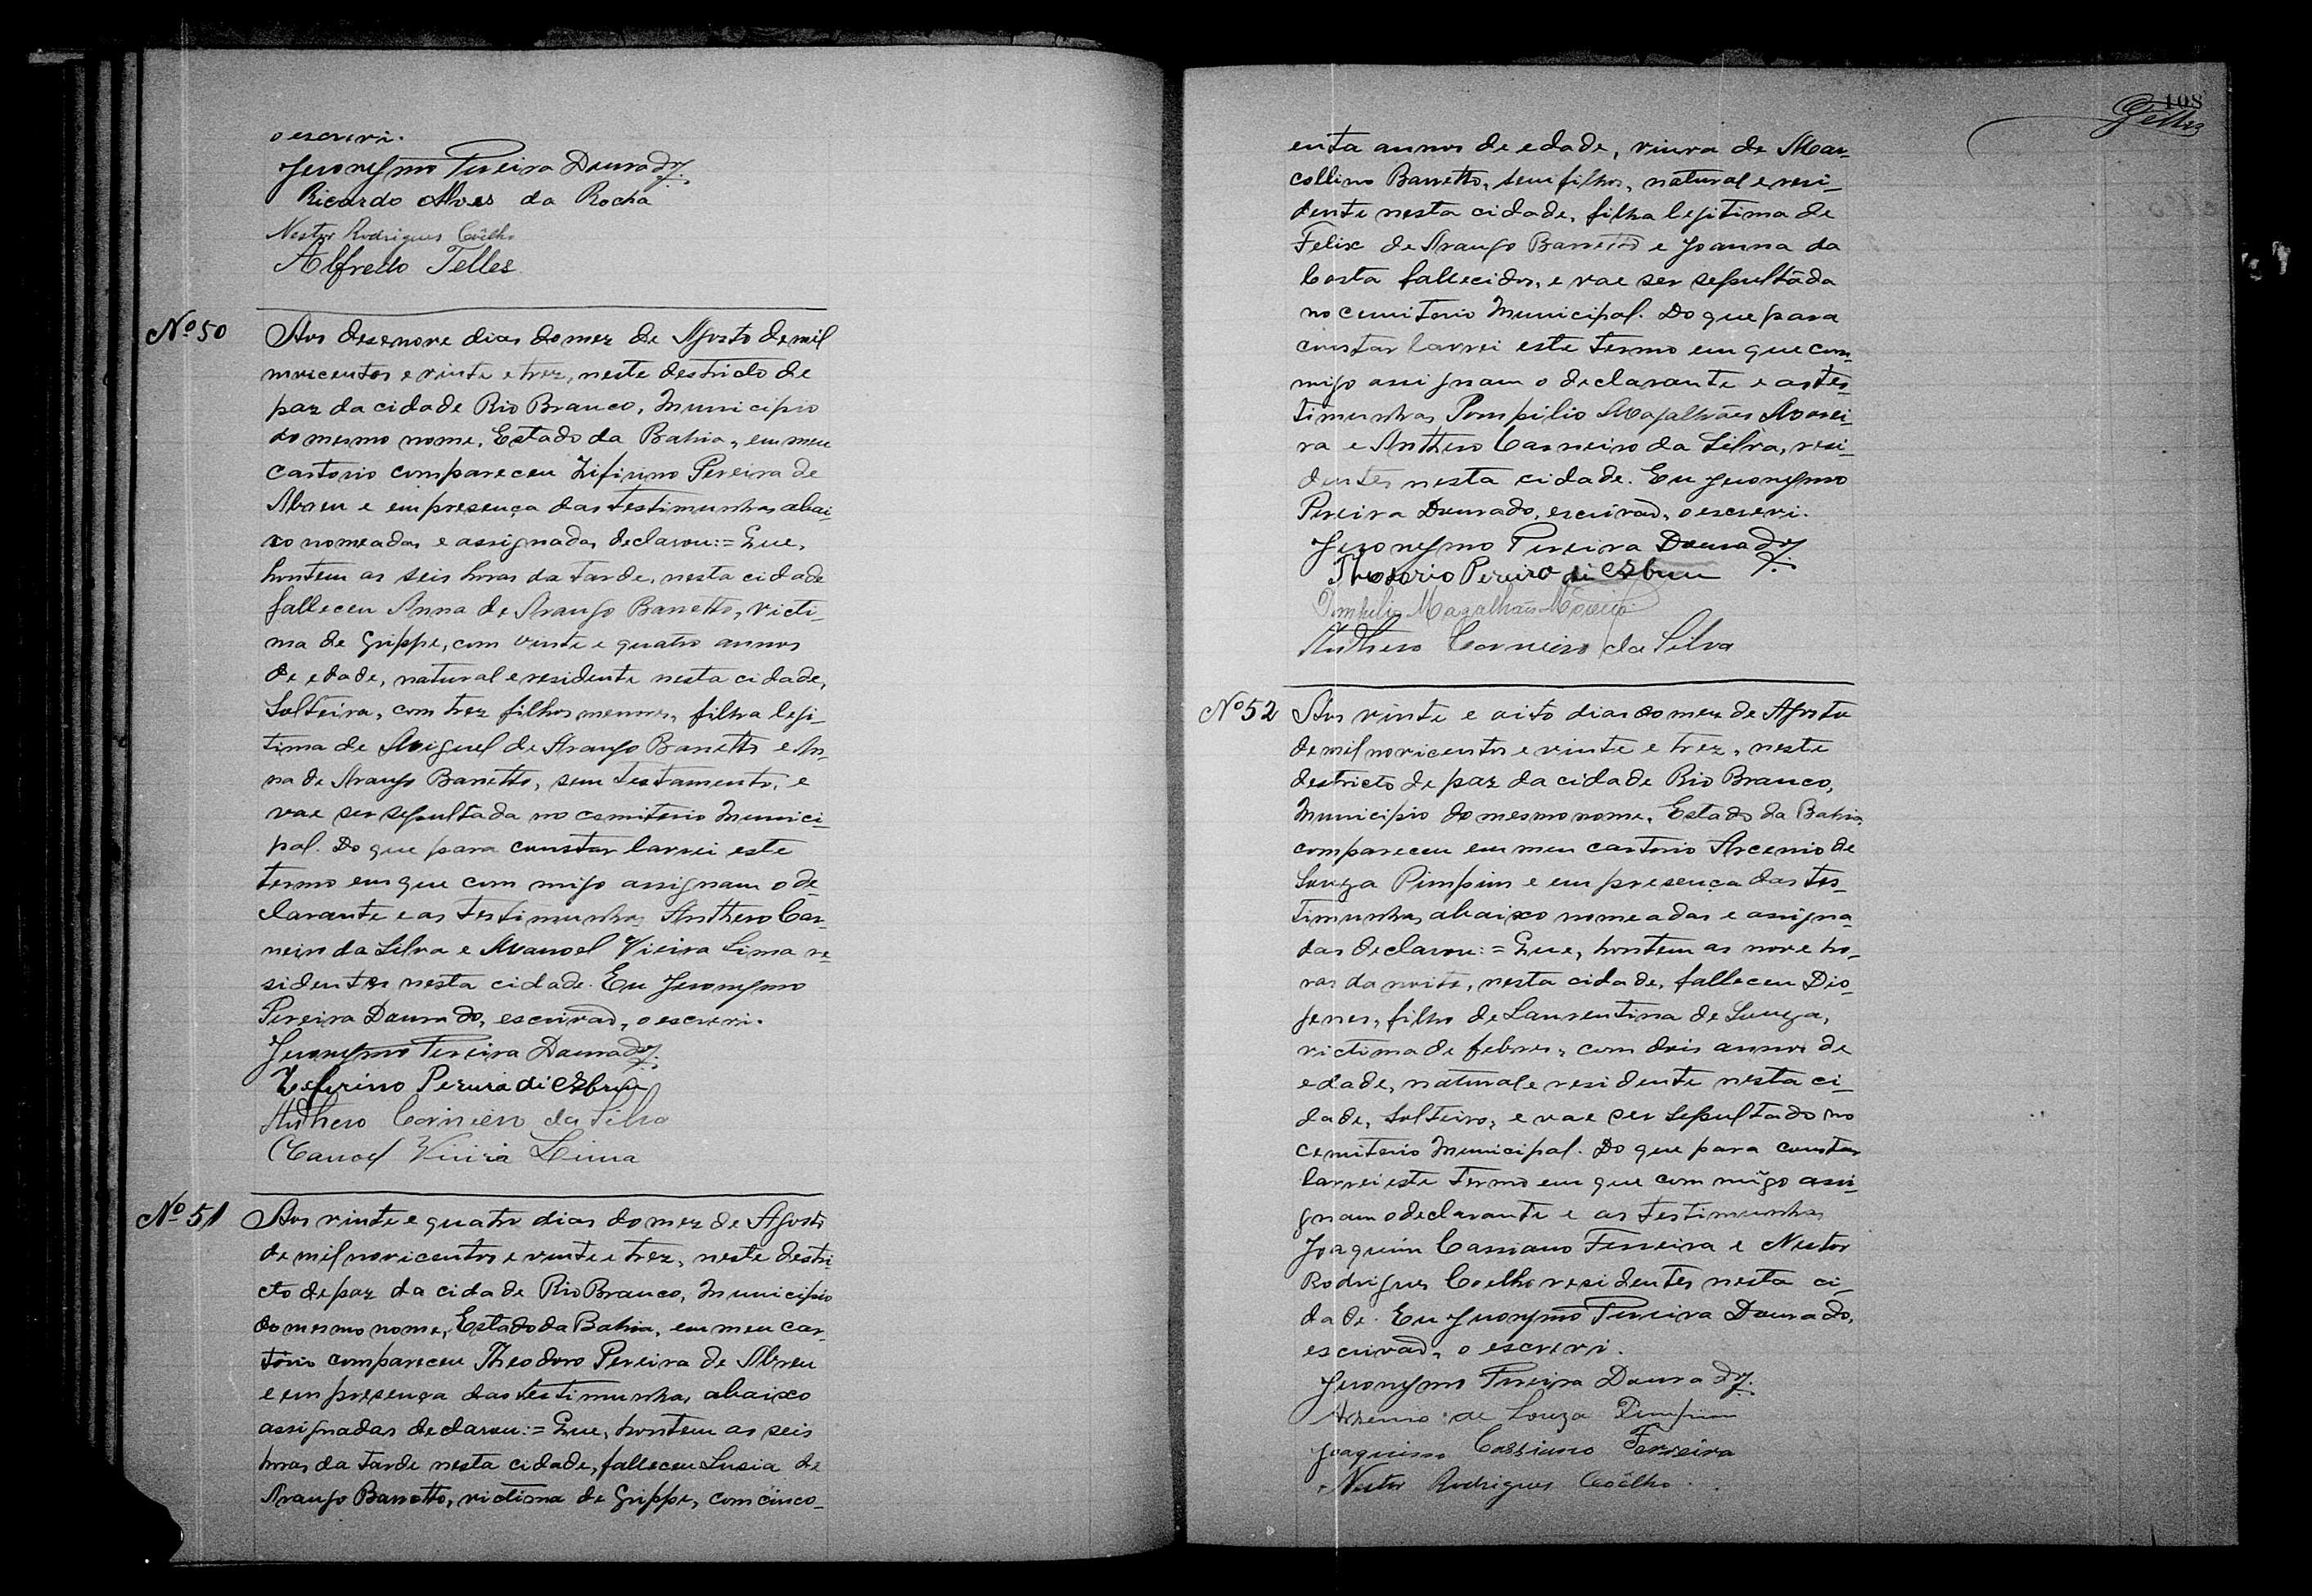 o escrevi.
Jeronymo Pereira Dourado
Ricardo Alves da Rocha
Nestor Rodrigues Coêlho
Alfredo Telles
Nº 50
Aos desenove dias do mez de Agosto de mil
novicentos e vinte e trez, neste destricto de
paz da cidade Rio Branco, Municipio
do mesmo nome, Estado da Bahia, em meu
cartorio compareceu Zifirino Pereira de
Abreu e em presença das testimunhas abai-
xo nomeadas e assignadas declarou:= Que,
hontem as seis horas da tarde, nesta cidade
falleceu Anna de Araujo Barretto, victi-
ma de Grippe, com vinte e quatro annos
de edade, natural e residente nesta cidade,
Solteira, com trez filhos menores, filha legi-
tima de Miguel de Araujo Barretto e An-
na de Araujo Barretto, sem testamento, e
vae ser sepultada no cemiterio Munici-
pal. Do que para constar lavrei este
termo em que com migo assignam o de-
clarante e as testimunhas Anthero Car-
neiro da Silva e Manoel Vieira Lima re-
sidentes nesta cidade. Eu Jeronymo
Pereira Dourado, escrivaõ, o escrevi.
Jeronymo Pereira Dourado
Zeferino Pereira di Abreu
Anthero Carneiro da Silva
Manoel Vieira Lima
Nº 51
Aos vinte e quatro dias do mez de Agosto
de mil novicentos e vinte e trez, neste destri-
cto de paz da cidade Rio Branco, Municipio
do mesmo nome, Estado da Bahia, em meu car-
torio compareceu Theodoro Pereira de Abreu
e em presença das testimunhas abaixo
assignadas declarou:= Que, hontem as seis
horas da tarde nesta cidade, falleceu Lusia de
Araujo Barretto, victima de Grippe, com cinco-
108
Telles
enta annos de edade, viuva de Mar-
collino Barretto, sem filhos, natural e resi-
dente nesta cidade, filha legitima de
Felix de Araujo Barretto e Joanna da
Costa fallecidos, e vae ser sepultada
no cemiterio Municipal. Do que para
constar lavrei este termo em que com-
migo assignam o declarante e as tes-
timunhas Pompilio Magalhães Morei-
ra e Anthero Carneiro da Silva, resi-
dentes nesta cidade. Eu Jeronymo
Pereira Dourado, escrivaõ, o escrevi.
Jeronymo Pereira Dourado
Theodorio Pereira di Abreu
Pompilio Magalhães Moreira
Anthero Carneiro da Silva
Nº 52
Aos vinte e oito dias do mez de Agosto
de mil novicentos e vinte e trez, neste
destricto de paz da cidade Rio Branco,
Municipio do mesmo nome, Estado da Bahia,
compareceu em meu cartorio Arcenio de
Souza Pimpim e em presença das tes-
timunhas abaixo nomeadas e assigna-
das declarou:= Que, hontem as nove ho-
ras da noite, nesta cidade, falleceu Dio-
genes, filho de Laurentina de Souza,
victima de febres, com dois annos de
edade, natural e residente nesta ci-
dade, Solteiro, e vae ser sepultado no
cemiterio Municipal. Do que para constar
lavrei este termo em que com migo assi-
gnam o declarante e as testimunhas
Joaquim Cassiano Ferreira e Nestor
Rodrigues Coelho residentes nesta ci-
dade. Eu Jeronymo Pereira Dourado,
escrivaõ, o escrevi.
Jeronymo Pereira Dourado
Arsenio de Souza Pimpim
Joaquim Cassiano Ferreira
Nestor Rodrigues Coêlho